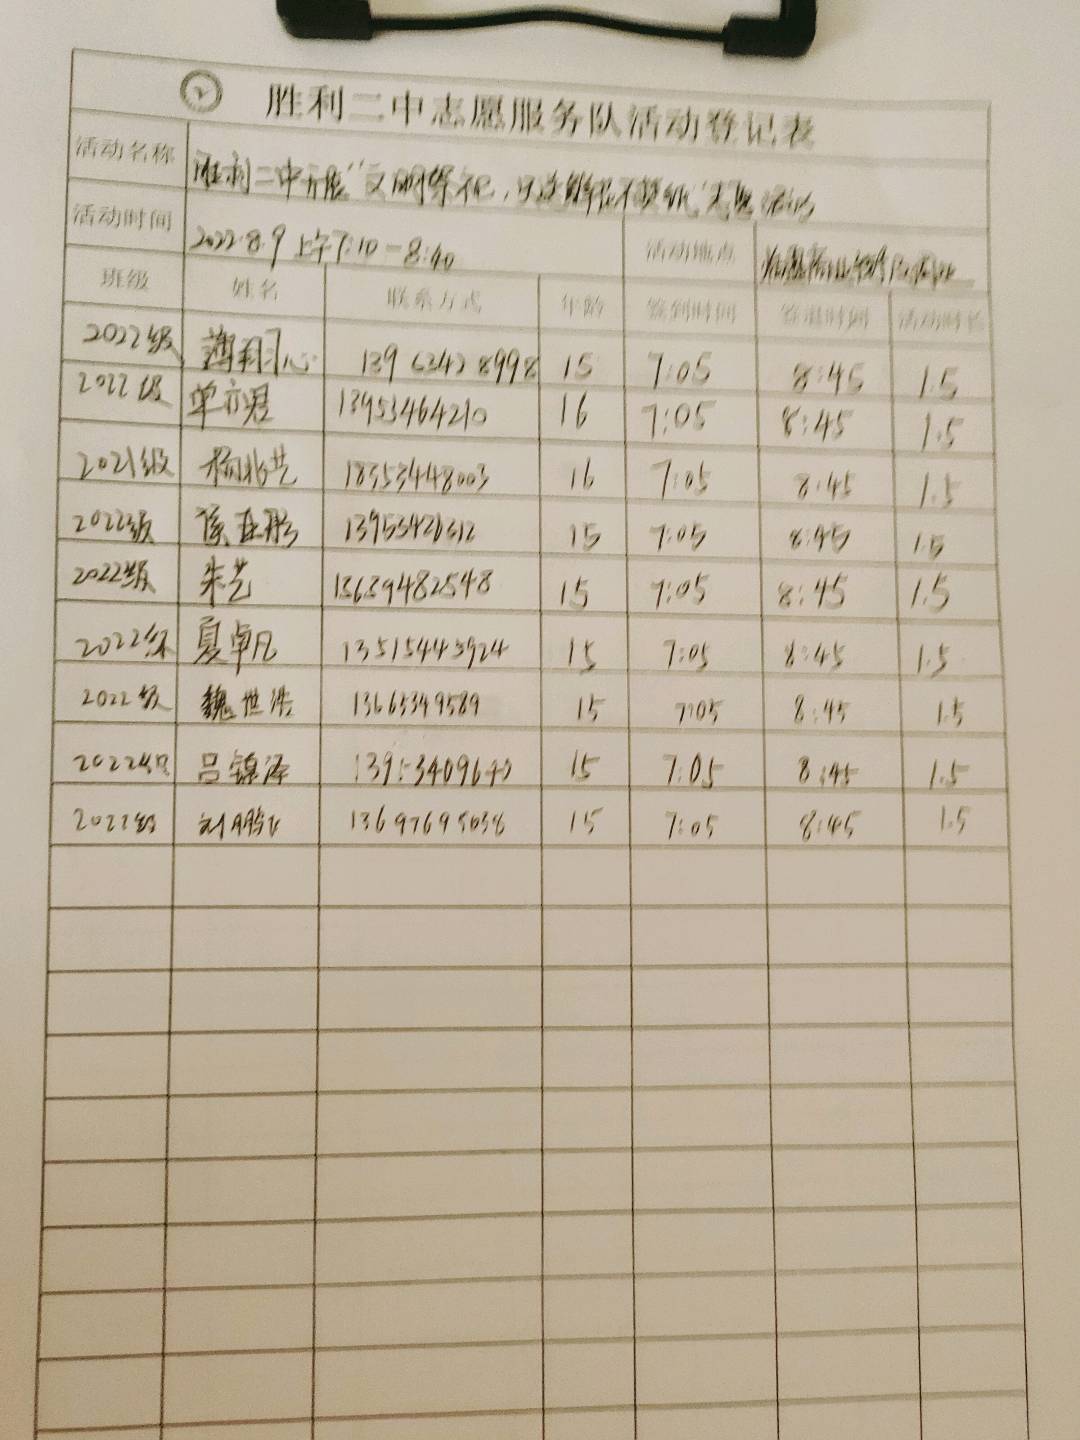 胜利二中志愿服务队活动登记表
活动名称 胜利二中开展“文明祭祀,只送鲜花不烧纸”志愿活动
活动时间 2022.8.9 上午7:10-8:40 活动地点
班级 姓名 联系方式 年龄 签到时间 签退时间 活动时长
2022级 15 7:05 8:45 1.5
2022级 单亦君 13953464210 16 7:05 8:45 1.5
2021级 杨兆艺 18553448003 16 7:05 8:45 1.5
2022级 15 7:05 8:45 1.5
2022级 朱艺 13639482548 15 7:05 8:45 1.5
2022级 夏卓凡 13515445924 15 7:05 8:45 1.5
2022级 魏世浩 13665349589 15 7:05 8:45 1.5
2022级 吕锦泽 15 7:05 8:45 1.5
2022级 15 7:05 8:45 1.5